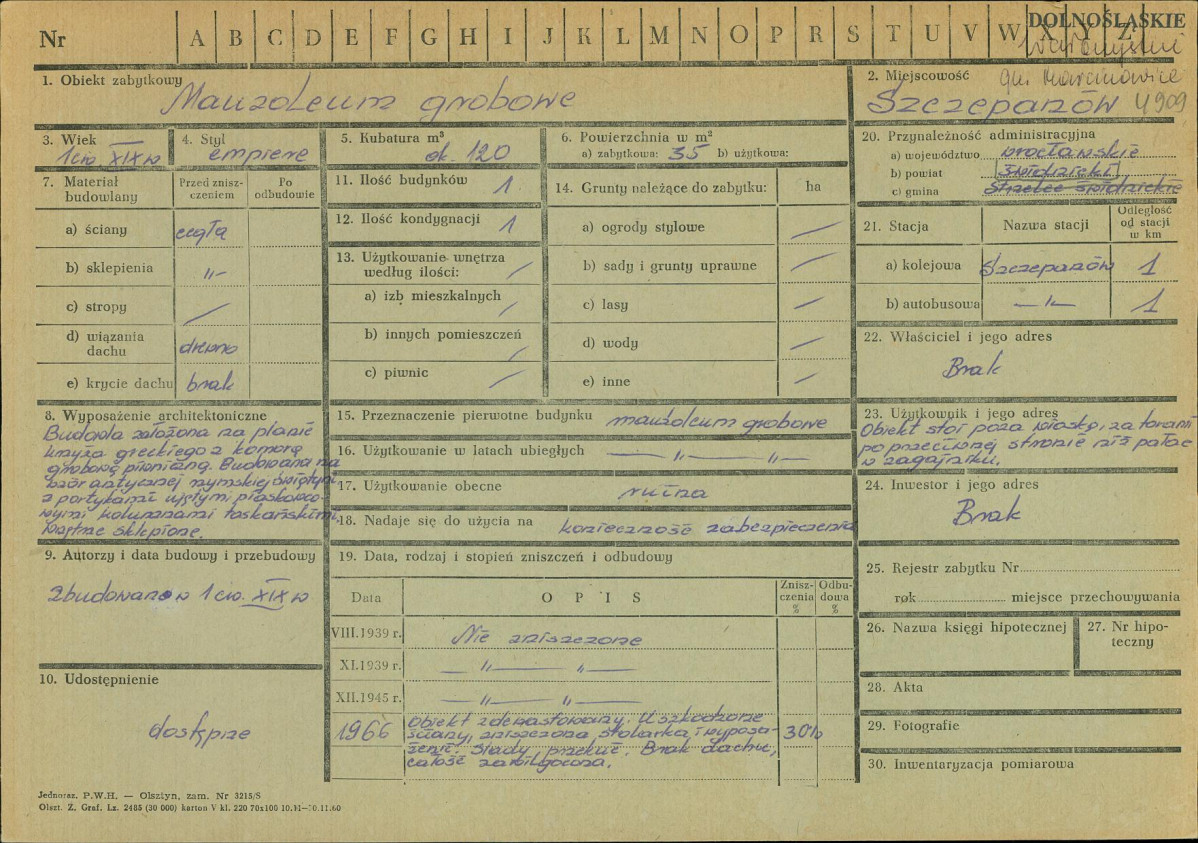 Nr A B C D E F G H I J K L M N O P R S T U V W X Y Z
DOLNOŚLĄSKIE
wałbrzyskie
1. Obiekt zabytkowy
Mauzoleum grobowe
2. Miejscowość gm. Marcinowice
Szczepanów 4909
3. Wiek
1 ćw. XIX w
4. Styl
empire
5. Kubatura m³
ok. 120
6. Powierzchnia w m²
a) zabytkowa: 35 b) użytkowa:
20. Przynależność administracyjna
a) województwo wrocławskie
b) powiat świdnicki
c) gmina
7. Materiał budowlany
Przed zniszczeniem
Po odbudowie
a) ściany cegła
b) sklepienia -"-
c) stropy /
d) wiązania dachu drewno
e) krycie dachu brak
11. Ilość budynków 1
12. Ilość kondygnacji 1
13. Użytkowanie wnętrza według ilości: /
a) izb mieszkalnych /
b) innych pomieszczeń /
c) piwnic /
14. Grunty należące do zabytku: ha
a) ogrody stylowe /
b) sady i grunty uprawne /
c) lasy /
d) wody /
e) inne /
21. Stacja
Nazwa stacji
Odległość od stacji w km
a) kolejowa Szczepanów 1
b) autobusowa -"- 1
22. Właściciel i jego adres
Brak
8. Wyposażenie architektoniczne
Budowla założona na planie
krzyża greckiego z komorą
grobową piwniczną. Budowana na
wzór antycznej rzymskiej świątyni
z portykami ujętymi piaskowco-
wymi kolumnami toskańskimi,
wnętrze sklepione.
15. Przeznaczenie pierwotne budynku mauzoleum grobowe
16. Użytkowanie w latach ubiegłych — " — " —
17. Użytkowanie obecne ruina
18. Nadaje się do użycia na konieczność zabezpieczenia
23. Użytkownik i jego adres
Obiekt stoi poza wioską, za torami
po przeciwnej stronie niż pałac
w zagajniku.
24. Inwestor i jego adres
Brak
9. Autorzy i data budowy i przebudowy
zbudowano w 1 ćw. XIX w
19. Data, rodzaj i stopień zniszczeń i odbudowy
Data
O P I S
Zniszczenia %
Odbudowa %
VIII.1939 r. Nie zniszczone
XI.1939 r. — " — " —
XII.1945 r. — " — " —
1966 Obiekt zdewastowany. Uszkodzone
ściany, zniszczona stolarka i wyposa-
żenie. Ślady przekuć. Brak dachu,
całość zawilgocona.
30%
25. Rejestr zabytku Nr
rok miejsce przechowywania
26. Nazwa księgi hipotecznej
27. Nr hipoteczny
10. Udostępnienie
dostępne
28. Akta
29. Fotografie
30. Inwentaryzacja pomiarowa
Jednoraz. P.W.H. — Olsztyn, zam. Nr 3215/S
Olszt. Z. Graf. Lz. 2485 (30 000) karton V kl. 220 70x100 10.11-10.11.60